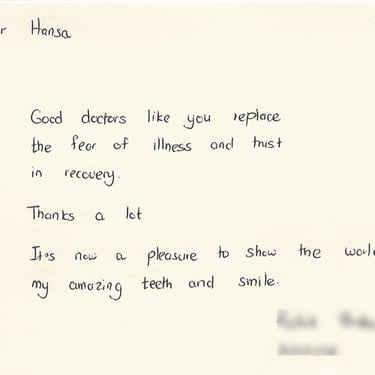 r Hansa
Good doctors like you replace
the fear of illness and trust
in recovery.
Thanks a lot
It's now a pleasure to show the worl
my amazing teeth and smile.